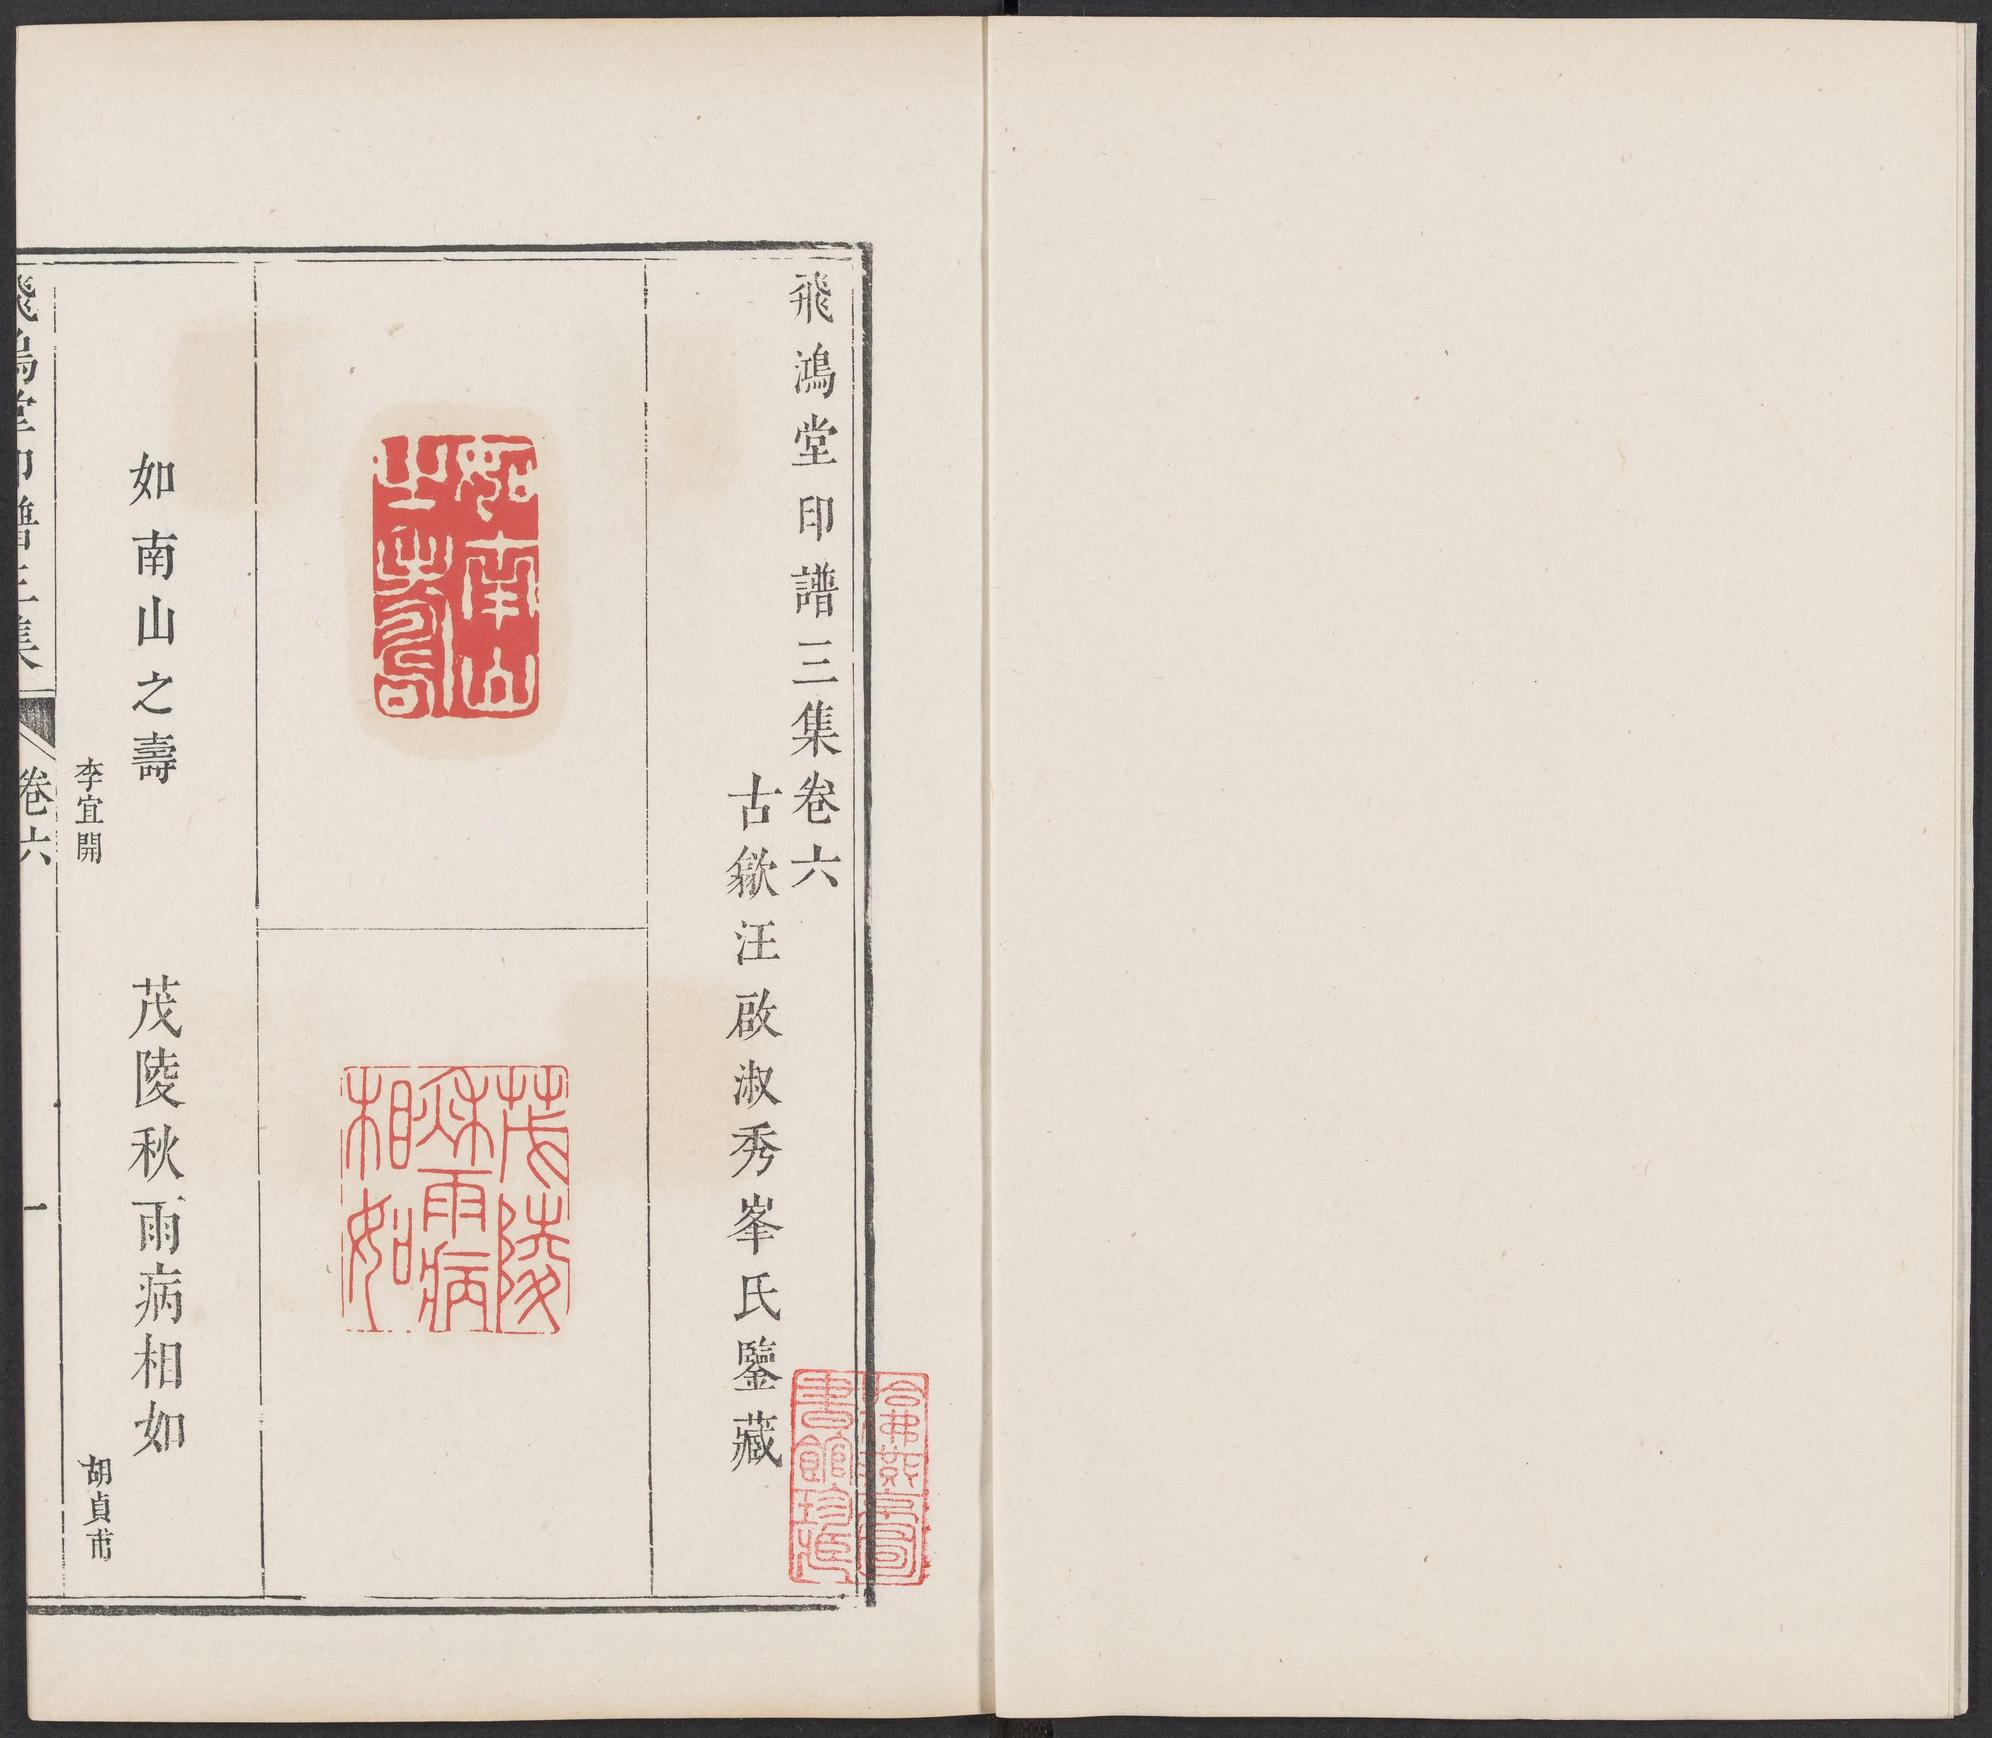 飛鴻堂印譜三集卷六
古歙汪啟淑秀峯氏鑒藏
哈佛燕京圖
書館珍藏
如南山
之壽
茂陵
秋雨病
相如
如南山之壽
李宜開
茂陵秋雨病相如
胡貞甫
飛鴻堂印譜三集
卷六
一